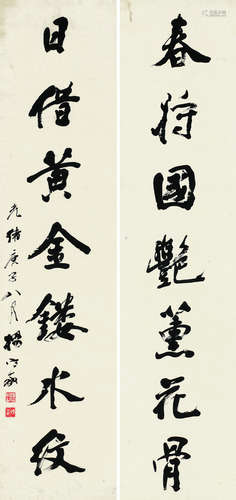 春將國艷薰花骨
日借黃金鏤水紋
光緒庚寅八月楊守敬